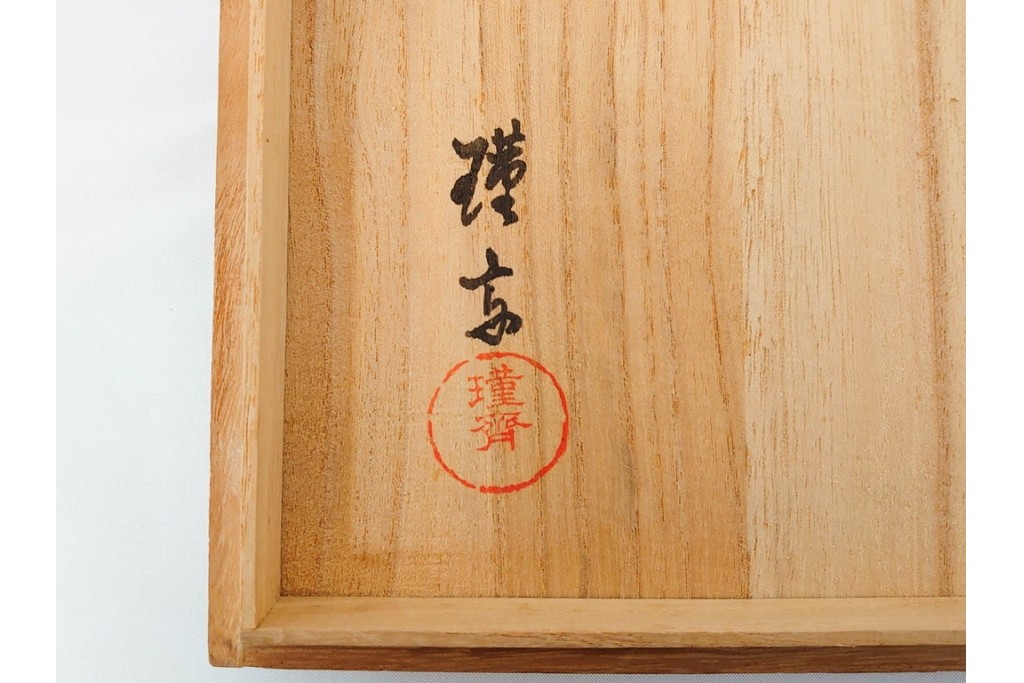 瑾斎
瑾齊